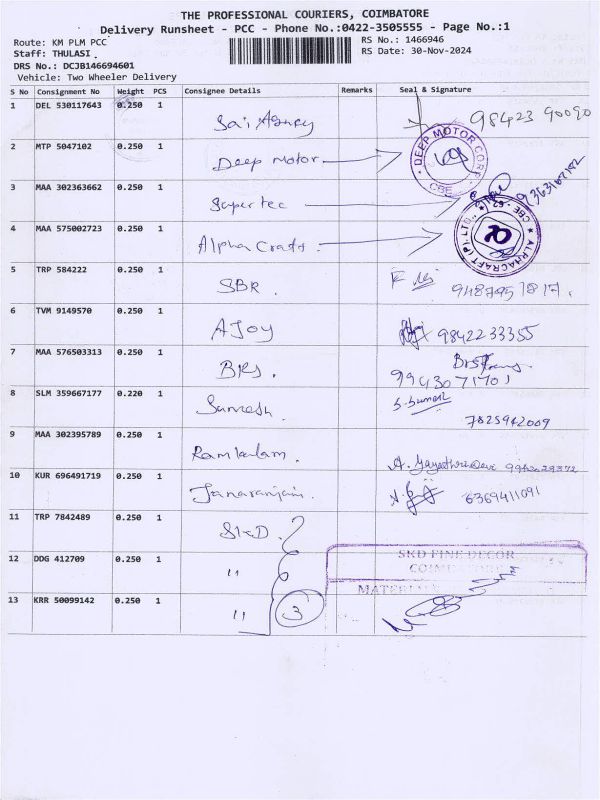 THE PROFESSIONAL COURIERS, COIMBATORE
Delivery Runsheet - PCC - Phone No.:0422-3505555 - Page No.:1
Route: KM PLM PCC
RS No.: 1466946
Staff: THULASI
RS Date: 30-Nov-2024
DRS No.: DCJB146694601
Vehicle: Two Wheeler Delivery
S No Consignment No Weight PCS Consignee Details Remarks Seal & Signature
1 DEL 530117643 0.250 1 Sai Agency 98423 90090
2 MTP 5047102 0.250 1 Deep Motor DEEP MOTOR CORP. CBE
3 MAA 302363662 0.250 1 Super tec
4 MAA 575002723 0.250 1 Alpha Craft. ALPHACRAFT (P) LTD., CBE - 62
5 TRP 584222 0.250 1 SBR.
6 TVM 9149570 0.250 1 AJoy 9842233355
7 MAA 576503313 0.250 1 BRS. 9943071701
8 SLM 359667177 0.220 1 Sumesh. 7825942009
9 MAA 302395789 0.250 1 Ramkalam.
10 KUR 696491719 0.250 1 Janaranjani. 6369411091
11 TRP 7842489 0.250 1 SKD.
12 DDG 412709 0.250 1 " SKD FINE DECOR
COIMBATORE
13 KRR 50099142 0.250 1 " 3